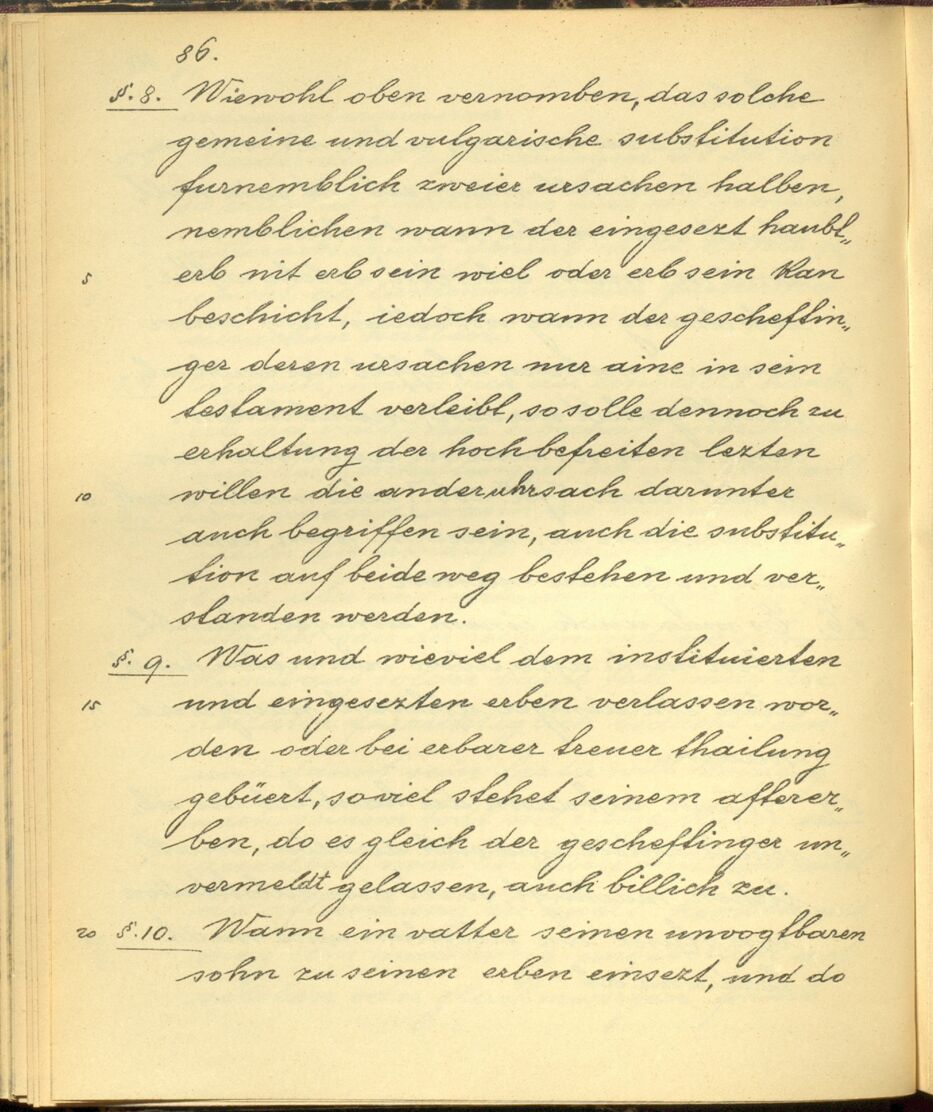 86.
§. 8. Wiewohl oben vernomben, das solche
gemeine und vulgarische substitution
furnemblich zweier ursachen halben,
nemblichen wann der eingesezt haubt„
5 erb nit erb sein wiel oder erb sein kan
beschicht, iedoch wann der gescheftin„
ger deren ursachen nur aine in sein
testament verleibt, so solle dennoch zu
erhaltung der hochbefreiten lezten
10 willen die ander uhrsach darunter
auch begriffen sein, auch die substitu„
tion auf beide weg bestehen und ver„
standen werden.
§. 9. Was und wieviel dem instituierten
15 und eingesezten erben verlassen wor„
den oder bei erbarer treuer thailung
gebüert, soviel stehet seinem afterer„
ben, do es gleich der gescheftinger un„
vermeldt gelassen, auch billich zu.
20 §. 10. Wann ein vatter seinen unvogtbaren
sohn zu seinen erben einsezt, und do